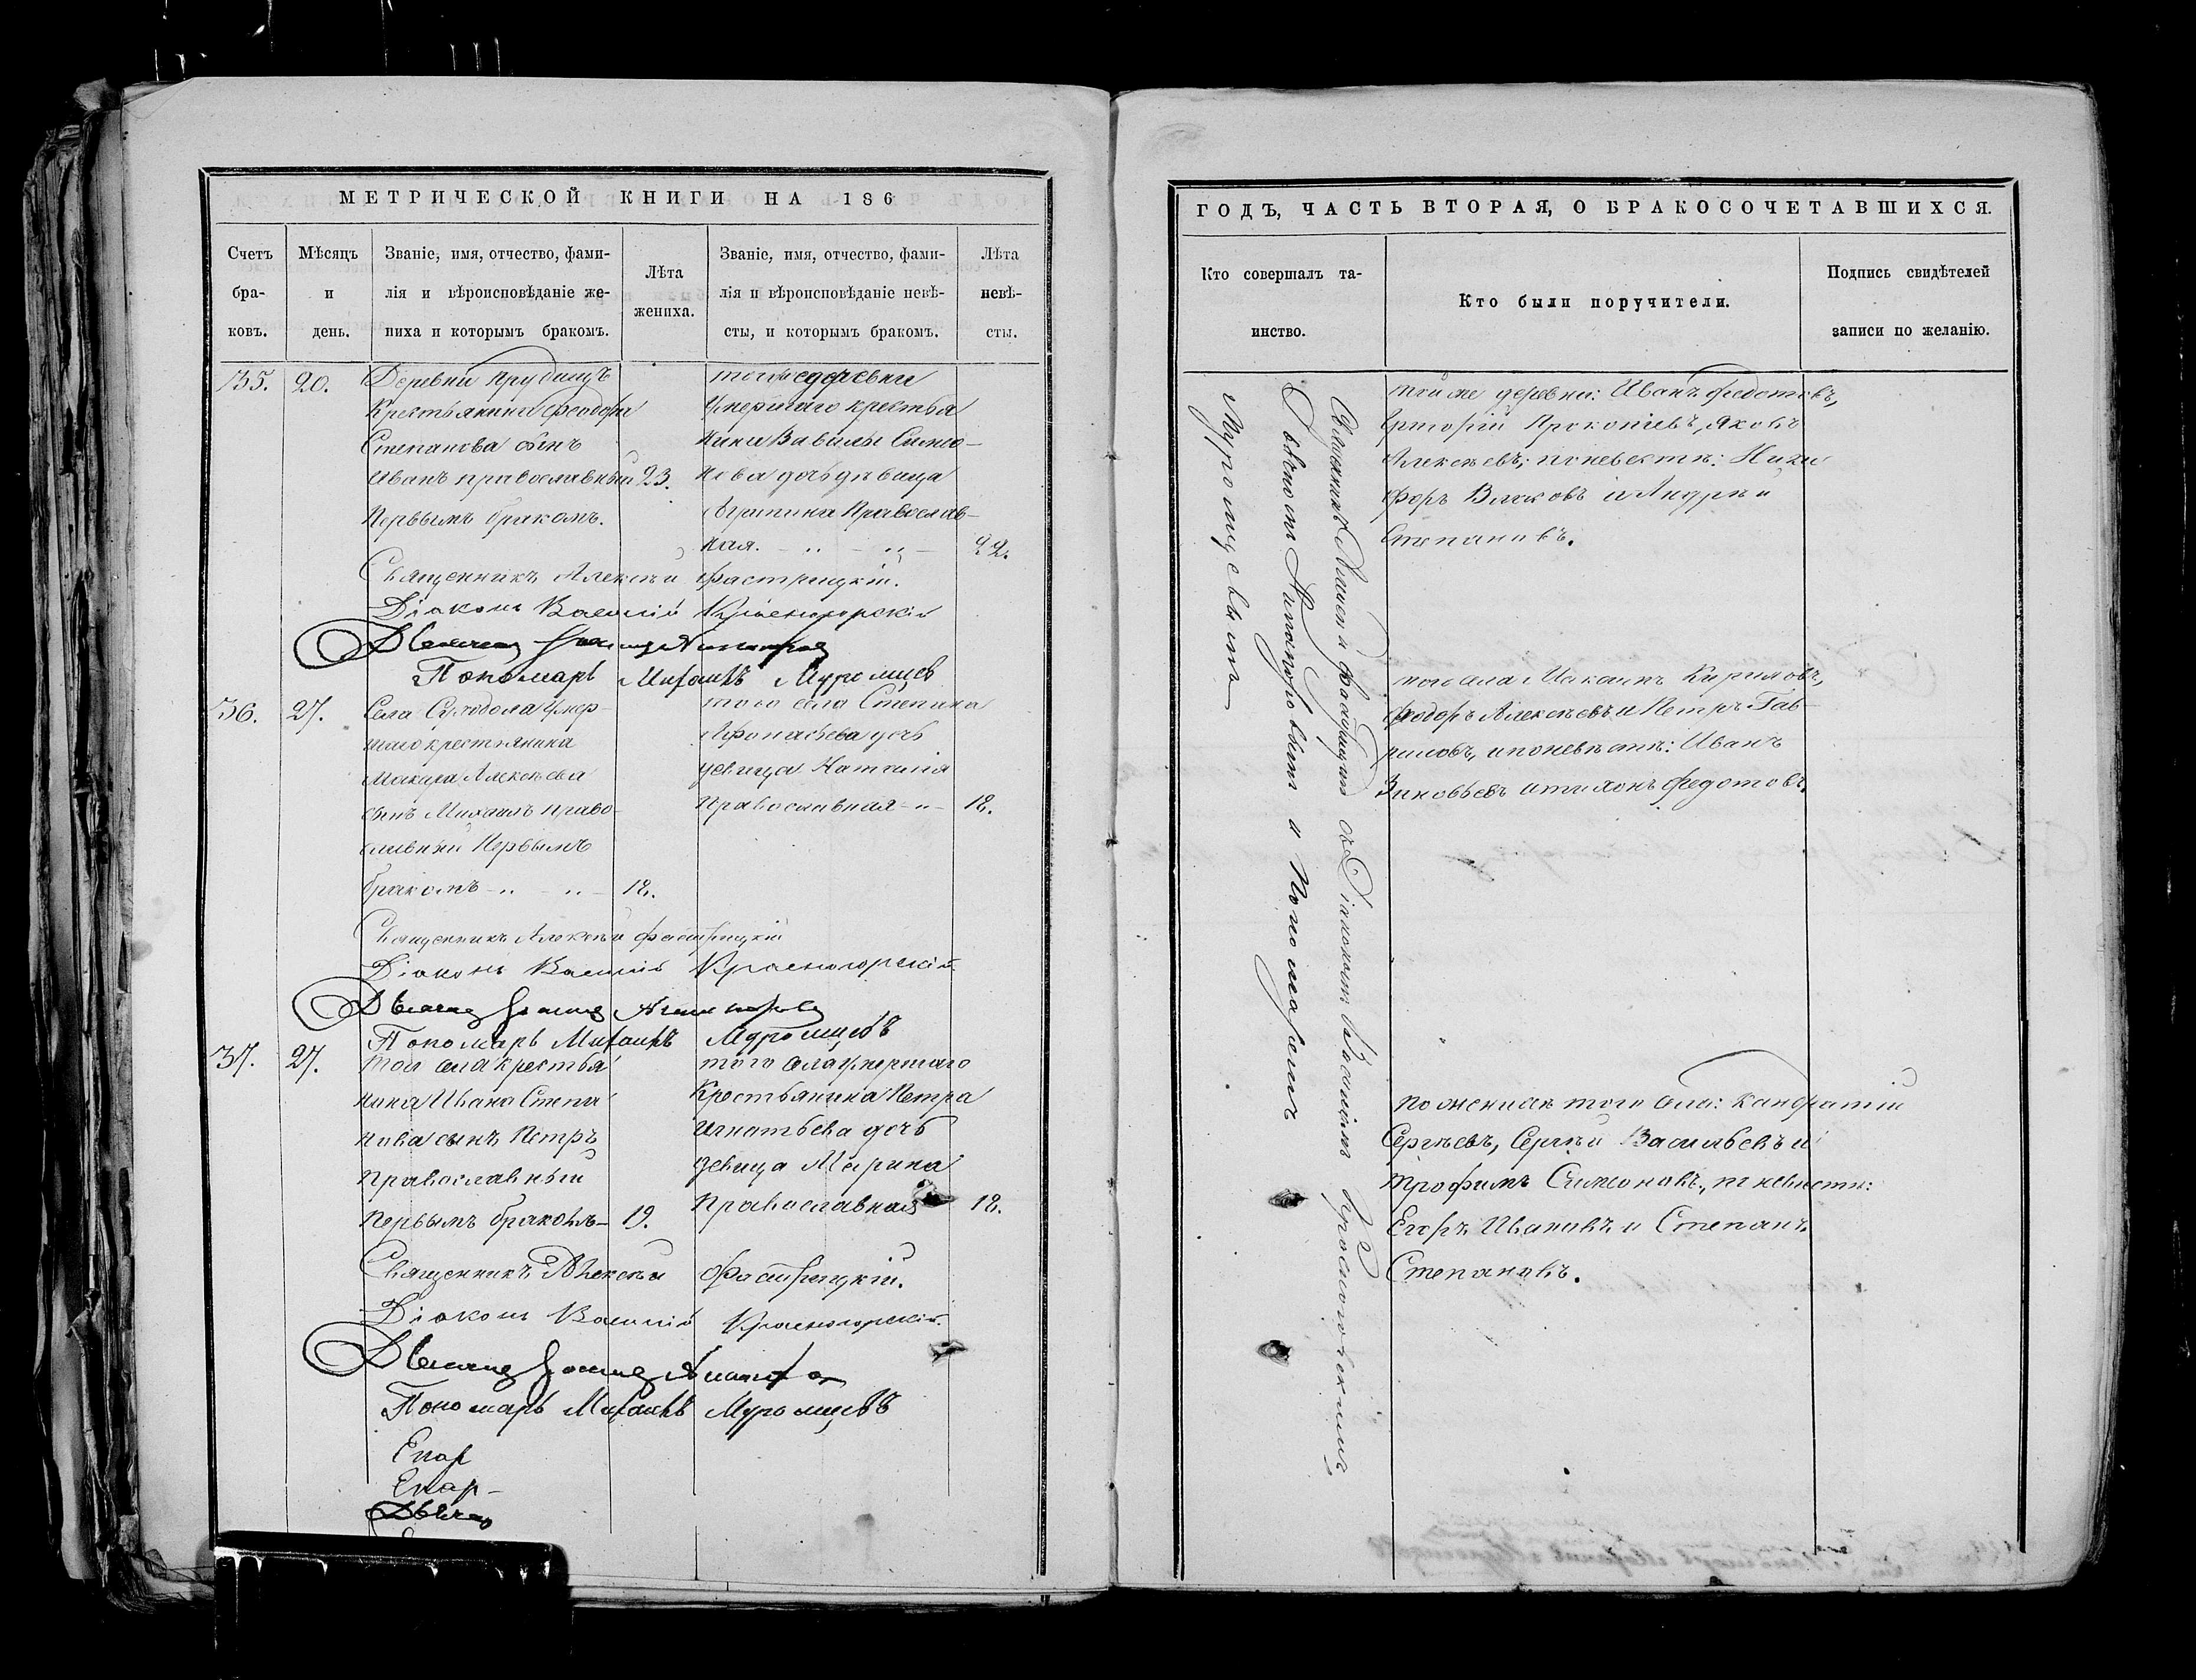 МЕТРИЧЕСКОЙ КНИГИ НА 186
Счетъ бра- ковъ.
Мѣсяцъ и день.
Званіе, имя, отчество, фами-
лія и вѣроисповѣданіе же-
ниха и которымъ бракомъ.
Лѣта
жениха.
Званіе, имя, отчество, фами-
лія и вѣроисповѣданіе невѣ-
сты, и которымъ бракомъ.
Лѣта
невѣ-
сты.
35. 20.
Деревни Прудищъ
Крестьянина Феодора
Степанова сынъ
Иванъ православный 23.
Первымъ бракомъ.
тойже деревни
Умершаго крестья
нина Вавилы Симо-
нова дочь девица
Агрипина Православ-
ная. 22.
Священникъ Алексѣй
Діаконъ Василій Красногорскій
Пономарь Михаилъ Муромцев
36. 27.
Села Суходола умер-
шаго крестьянина
Алексеева
сынъ Михаилъ право-
славный Первымъ
бракомъ 18.
того села Степана
Афонасьева дочь
девица Наталия
Православная 18.
Священникъ Алексѣй
Діаконъ Василій Красногорскій.
Пономарь Михаилъ Муромцевъ
37. 27.
того села крестья
нина Ивана Степа
нова сынъ Петръ
Православный
Первымъ бракомъ 19.
того села умершаго
Крестьянина Петра
Игнатьева дочь
девица Марина
Православная 18.
Священникъ Алексѣй
Діаконъ Василій Красногорскій.
Пономарь Михаилъ Муромцевъ
Епар
Епар-
ГОДЪ, ЧАСТЬ ВТОРАЯ, О БРАКОСОЧЕТАВШИХСЯ.
Кто совершалъ та-
инство.
Кто были поручители.
Подпись свидѣтелей
записи по желанію.
Священникъ съ Діакономъ Василіемъ Красногорскимъ
и Пономаремъ
Муромцевымъ
тойже деревни: Иванъ Федотовъ,
Прокопіевъ, Яковъ
Алексѣевъ; по невестѣ: Ники
форъ Власовъ и Андрей
Степановъ.
того села Кириловъ,
Феодоръ Алексѣевъ и Петръ Гав-
риловъ, и по невѣстѣ: Иванъ
Зиновьевъ и Федотовъ.
По женихѣ того села: Кандратій
Сергѣевъ, Сергѣй Васильевъ и
Трофимъ Симоновъ, по невѣстѣ:
Егоръ Ивановъ и Степанъ
Степановъ.